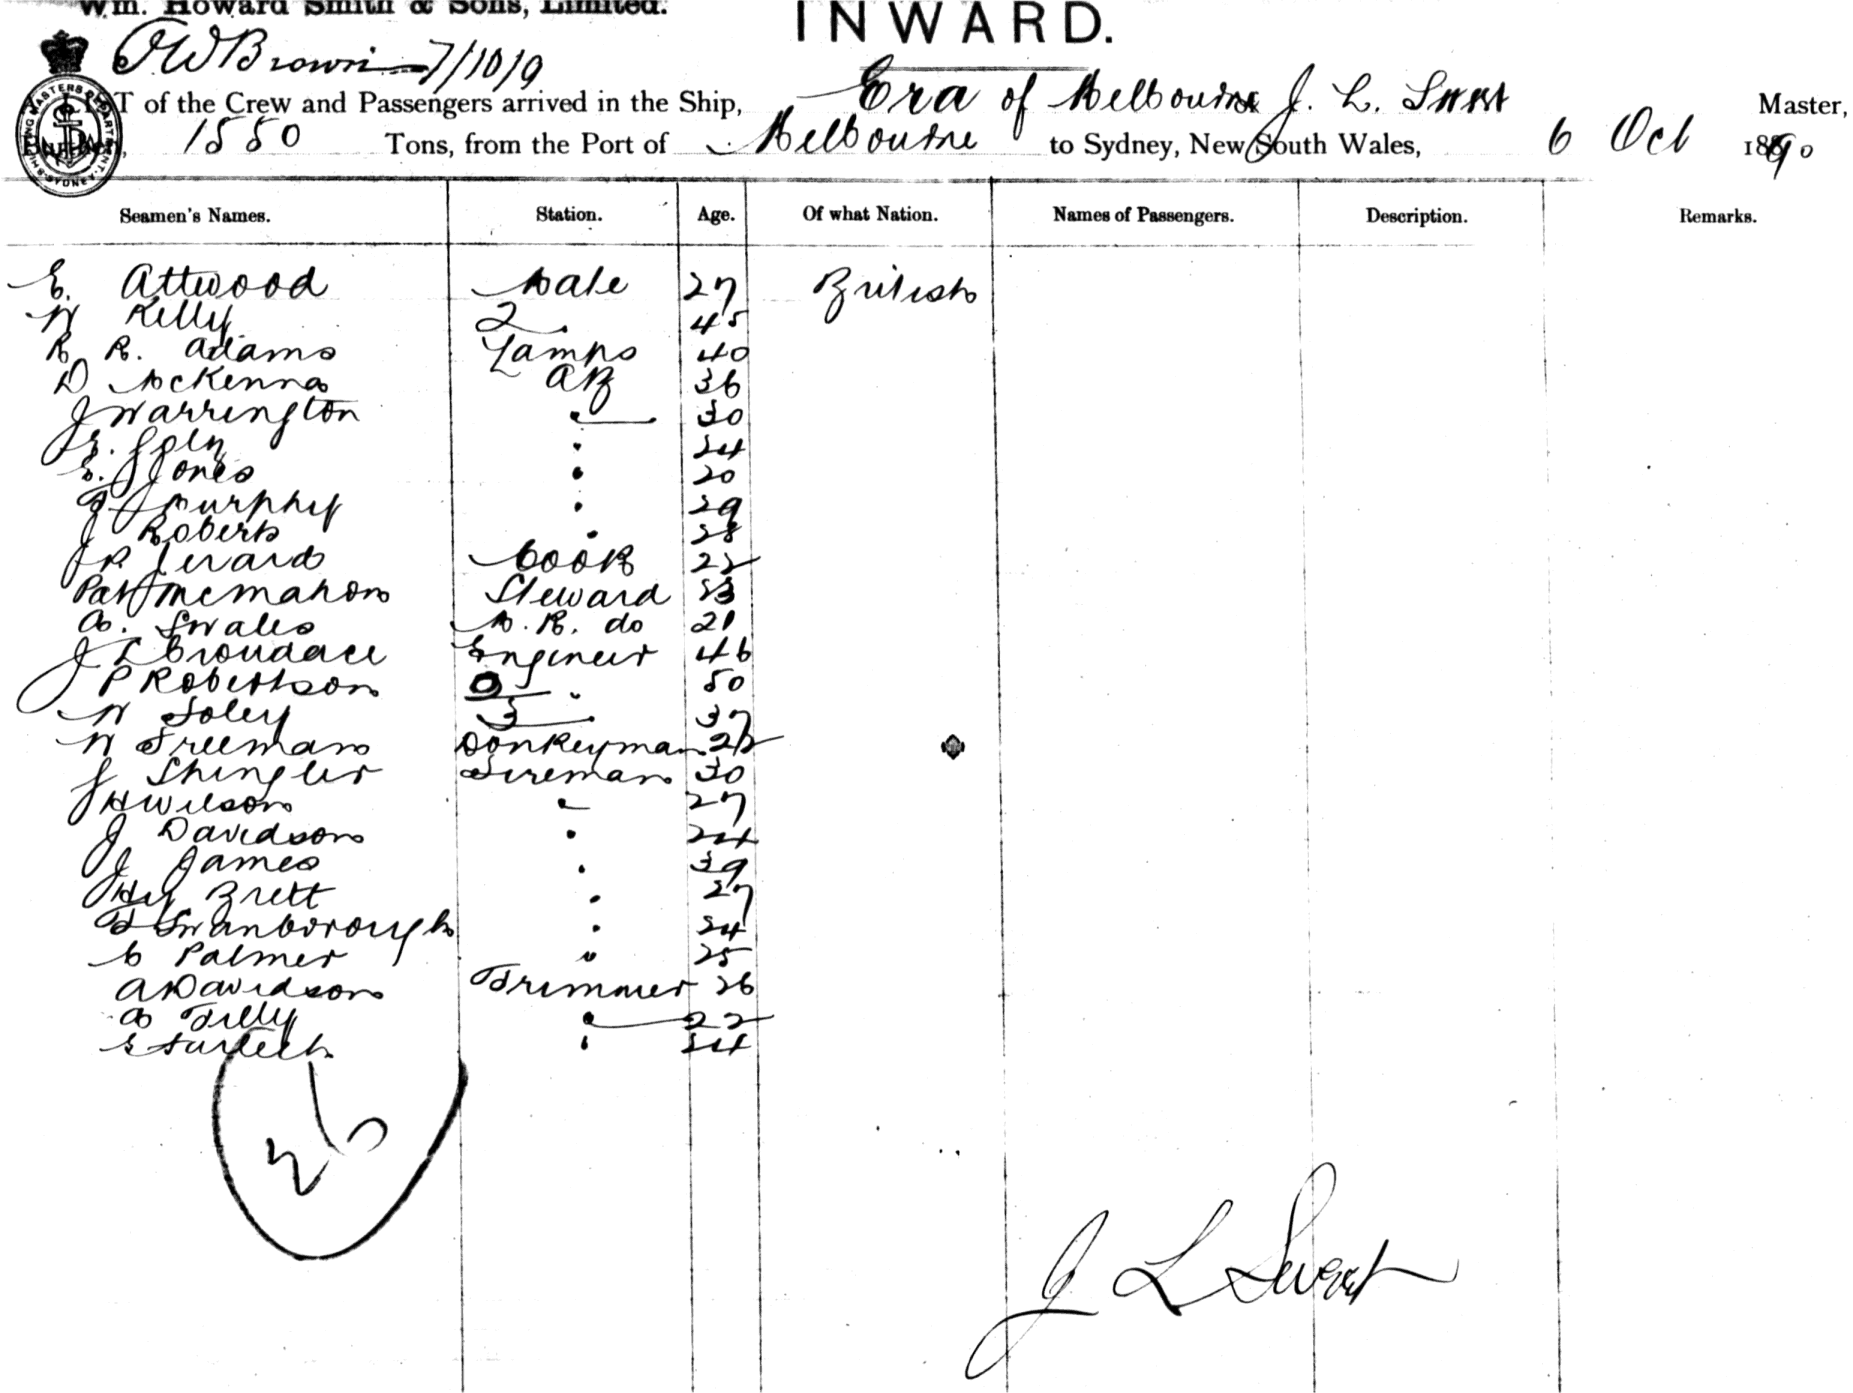 Wm. Howard Smith & Sons, Limited.
INWARD.
Brown 7/10/9
T of the Crew and Passengers arrived in the Ship, Era of Melbourne J. L. Sweet Master,
Burthen, 1550 Tons, from the Port of Melbourne to Sydney, New South Wales, 6 Oct 1890
Seamen's Names. Station. Age. Of what Nation. Names of Passengers. Description. Remarks.
E. Attwood Mate 27 British
W Kelly 2 " 45
R R. Adams Lamps 40
D McKenna AB 36
J Warrington " 30
" 24
E. Jones " 20
Murphy " 29
J Roberts " 28
J R 22 Cook
Pat McMahon Steward 23
A. Swales M. R. do 21
J L Croudace Engineer 46
P Robertson 2 " 50
W Foley 3 " 37
W Freeman Donkeyman
J Shingler Fireman 30
H Wilson " 27
J Davidson " 24
J James " 39
Hy Brett " 27
T Swanborough " 24
C Palmer " 25
A Davidson Trimmer 26
A Tilly " 22
E " 24
26
J L Sweet